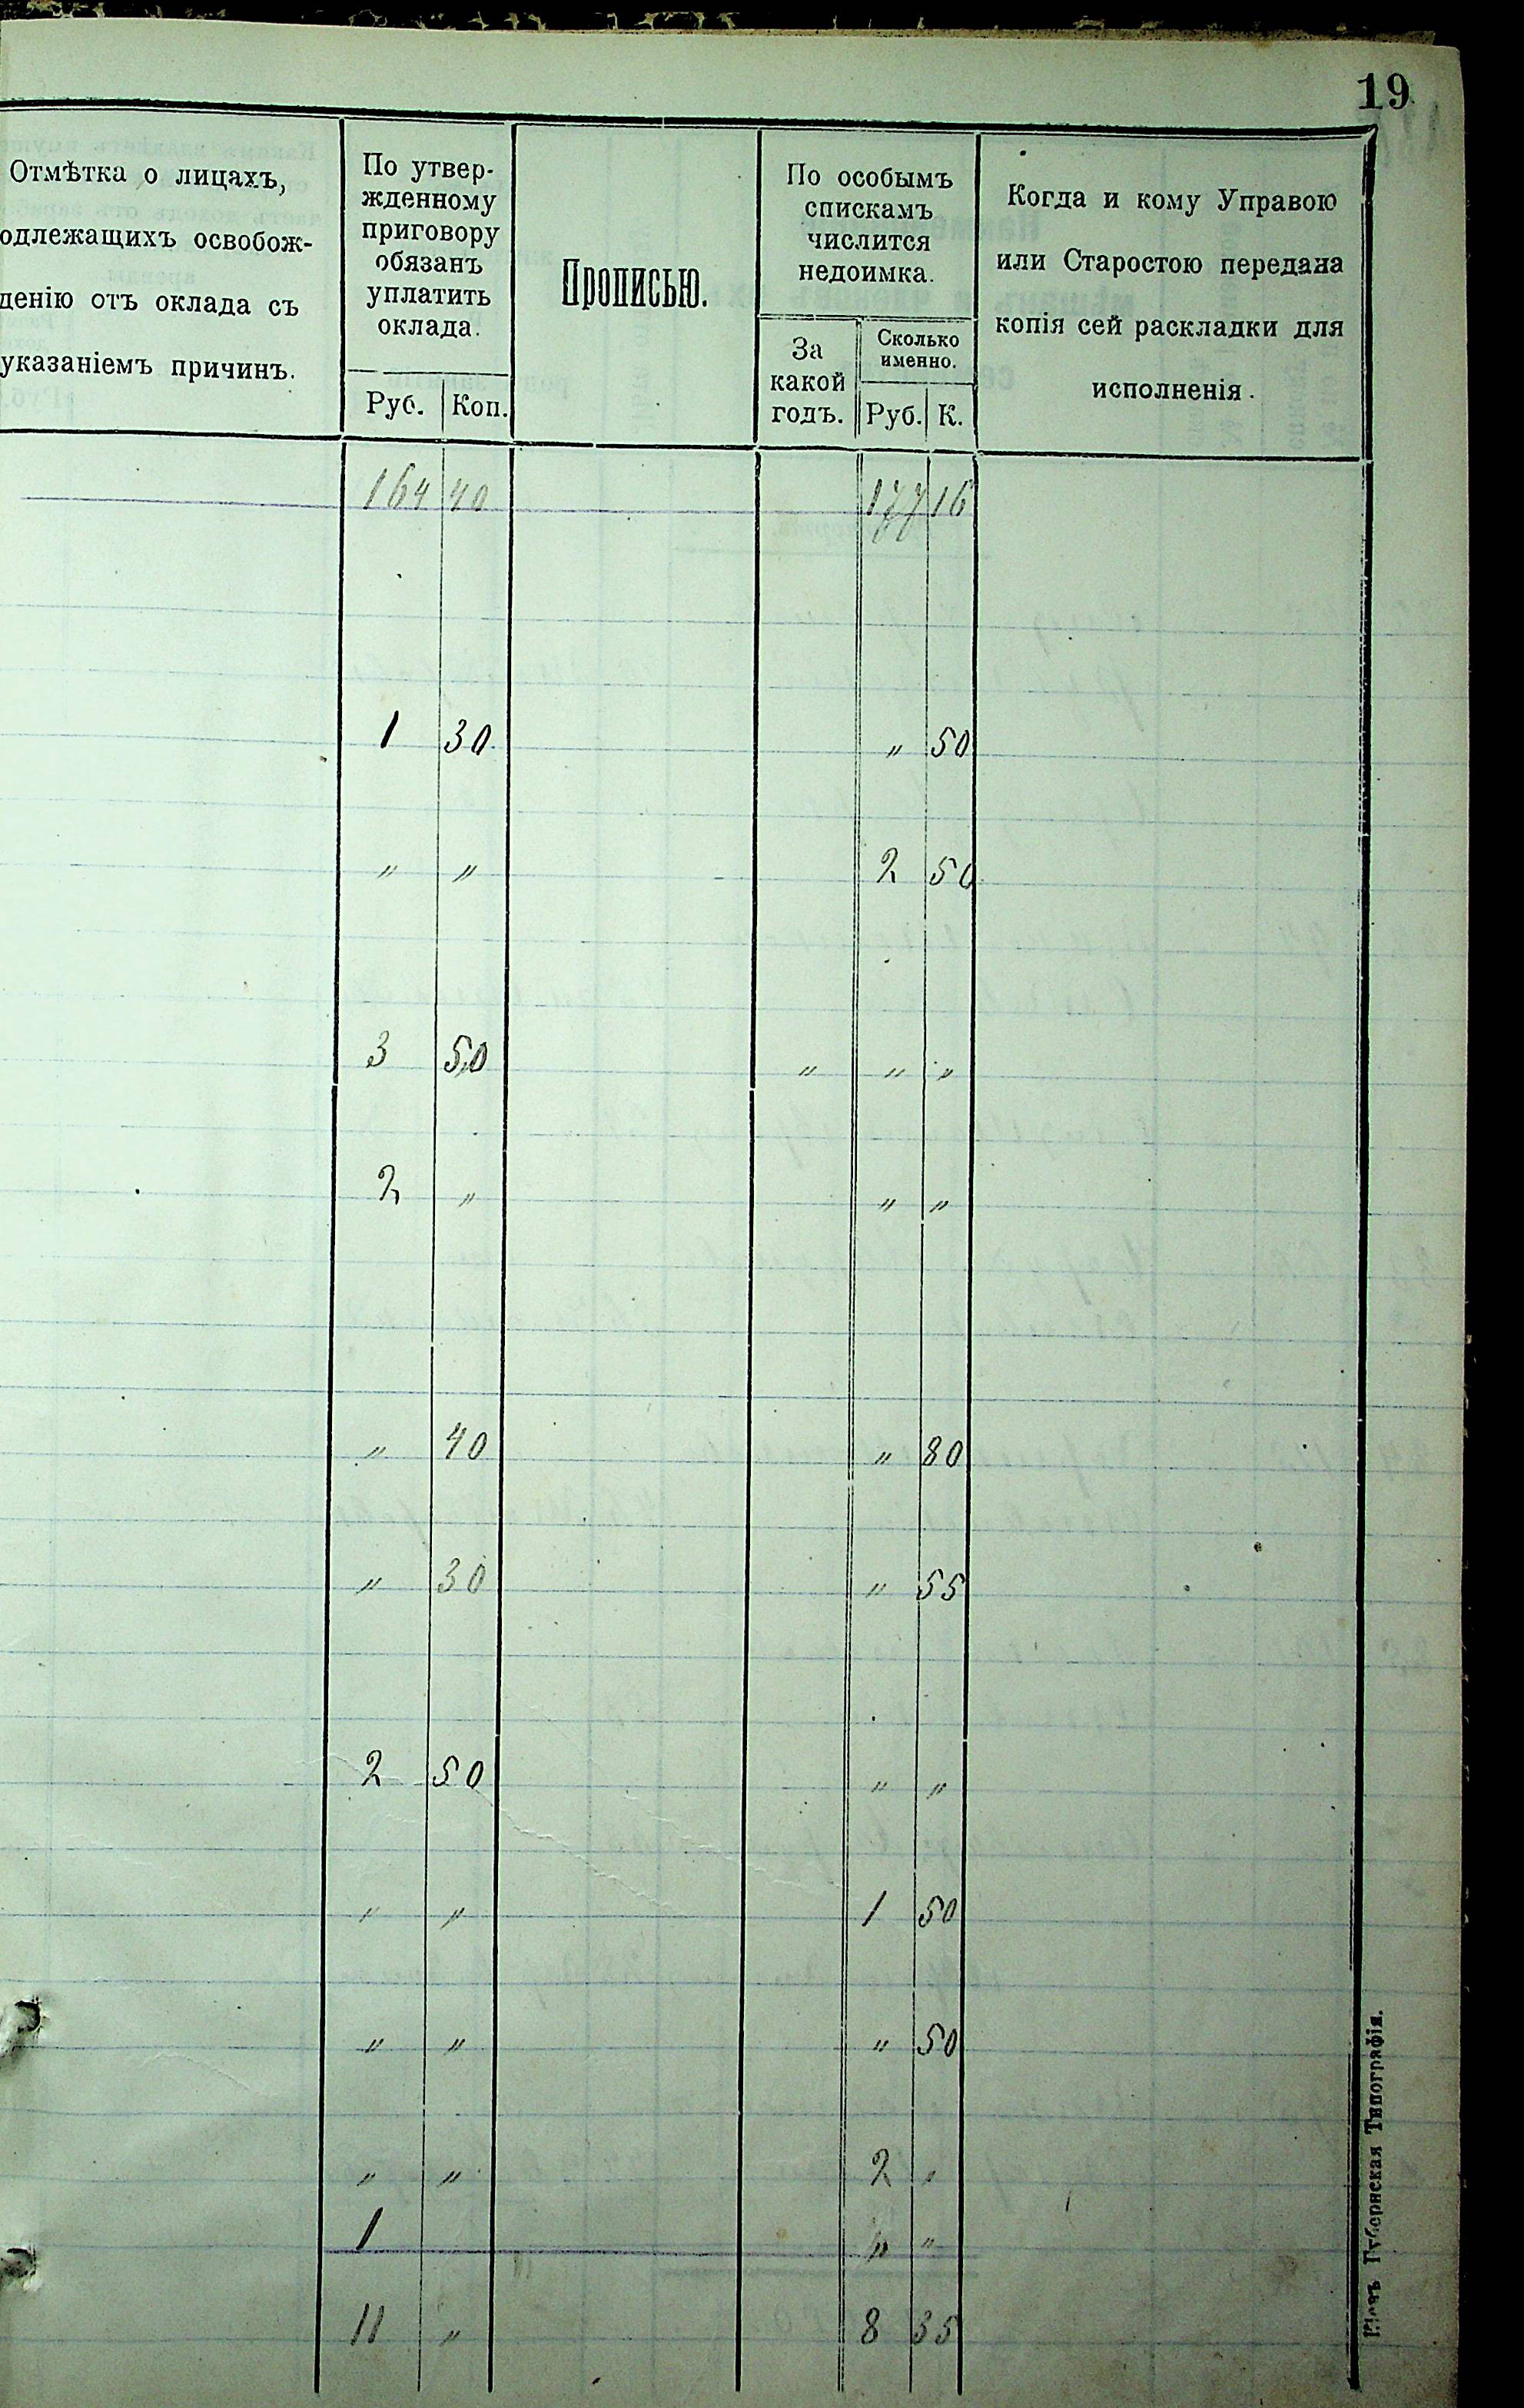 19
Отмѣтка о лицахъ,
одлежащихъ освобож-
денію отъ оклада съ
указаніемъ причинъ.
По утвер-
жденному
приговору
обязанъ
уплатить
оклада.
Руб. Коп.
Прописью.
По особымъ
спискамъ
числится
недоимка.
За
какой
годъ.
Сколько
именно.
Руб. К.
Когда и кому Управою
или Старостою передана
копія сей раскладки для
исполненія.
164 40 177 16
1 30 " 50
" " 2 50
3 50 " " "
2 " " "
" 40 " 80
" 30 " 55
2 50 " "
" " 1 50
" " " 50
" " 2 "
1 " "
11 " 8 35
Кіевъ Губернская Типографія.